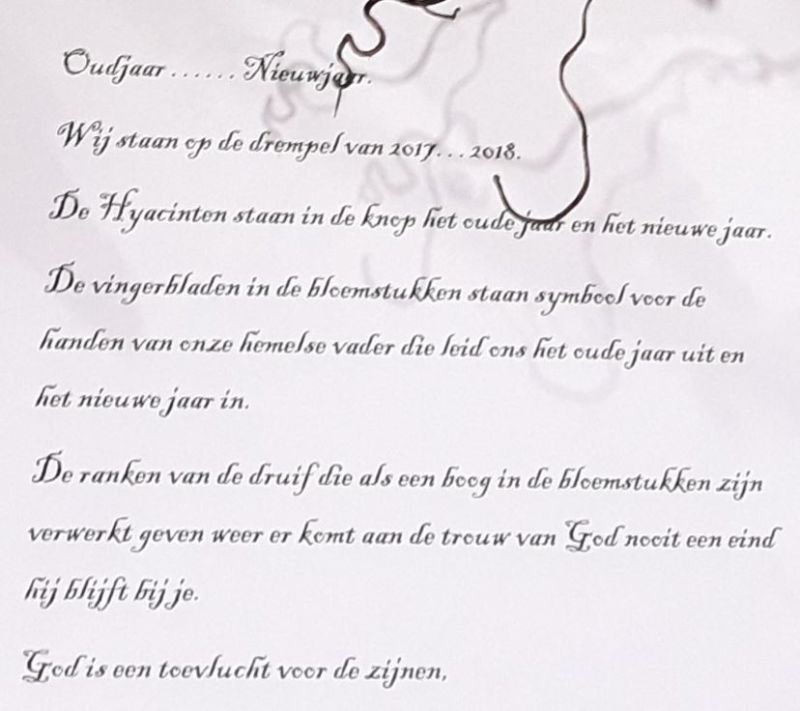 Oudjaar . . . . . . Nieuwjaar.
Wij staan op de drempel van 2017. . . 2018.
De Hyacinten staan in de knop het oude jaar en het nieuwe jaar.
De vingerbladen in de bloemstukken staan symbool voor de
handen van onze hemelse vader die leid ons het oude jaar uit en
het nieuwe jaar in.
De ranken van de druif die als een boog in de bloemstukken zijn
verwerkt geven weer er komt aan de trouw van God nooit een eind
hij blijft bij je.
God is een toevlucht voor de zijnen,